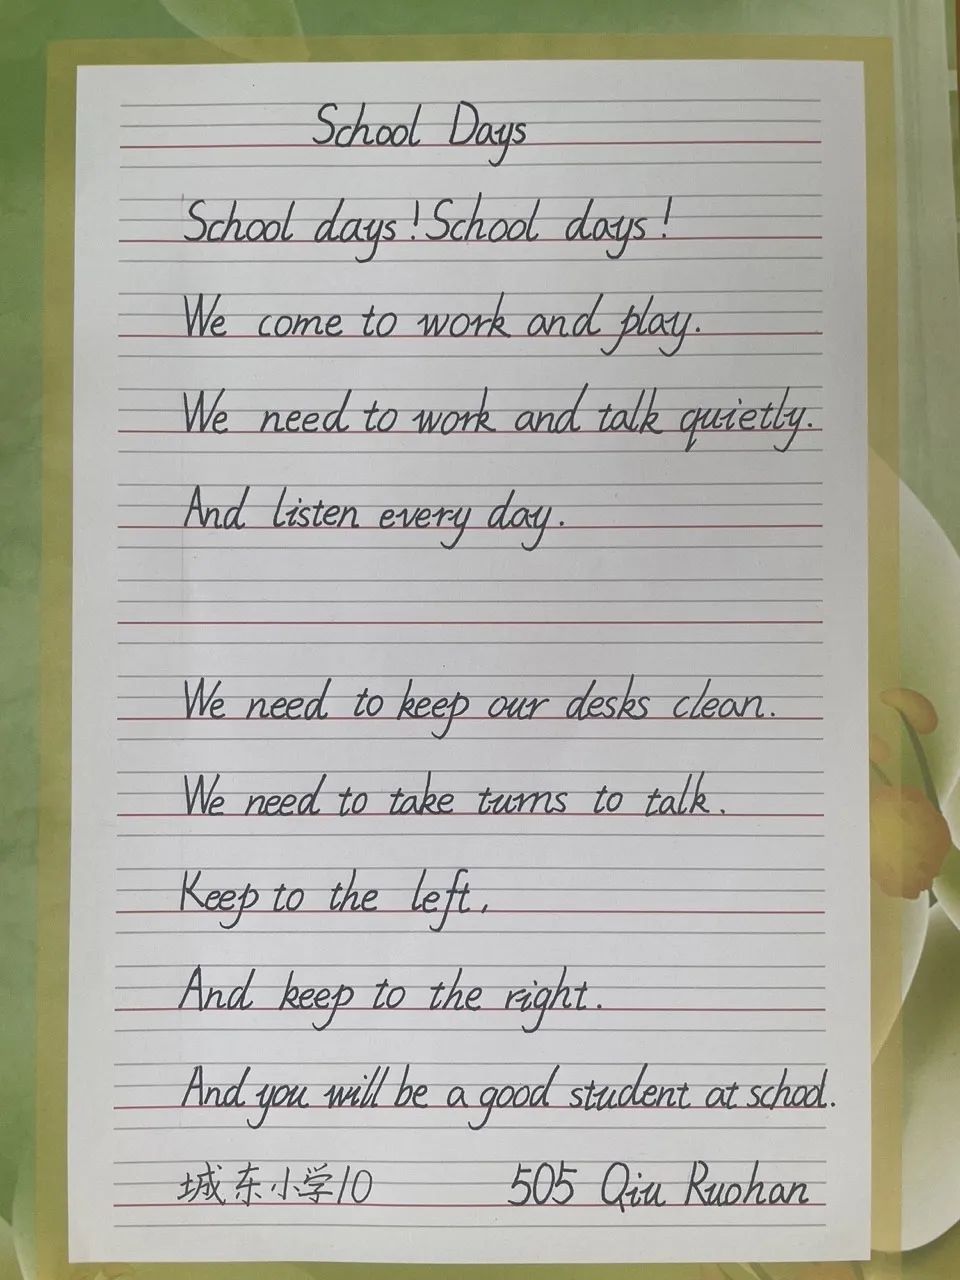 School Days
School days! School days!
We come to work and play.
We need to work and talk quietly.
And listen every day.
We need to keep our desks clean.
We need to take turns to talk.
Keep to the left,
And keep to the right.
And you will be a good student at school.
城东小学10 505 Qiu Ruohan